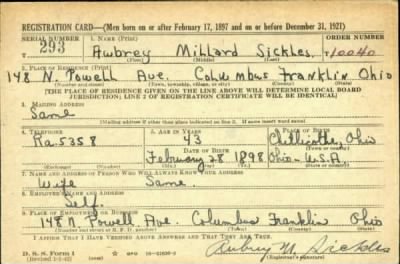 REGISTRATION CARD—(Men born on or after February 17, 1897 and on or before December 31, 1921)
SERIAL NUMBER 1. NAME (Print) ORDER NUMBER
293 Aubrey Millard Sickles 10040
(First) (Middle) (Last)
2. PLACE OF RESIDENCE (Print)
148 N. Powell Ave. Columbus Franklin Ohio
(Number and street) (Town, township, village, or city) (County) (State)
[THE PLACE OF RESIDENCE GIVEN ON THE LINE ABOVE WILL DETERMINE LOCAL BOARD
JURISDICTION; LINE 2 OF REGISTRATION CERTIFICATE WILL BE IDENTICAL]
3. MAILING ADDRESS
Same
[Mailing address if other than place indicated on line 2. If same insert word same]
4. TELEPHONE 5. AGE IN YEARS 6. PLACE OF BIRTH
Ra. 5358 43 Chillicothe, Ohio
DATE OF BIRTH (Town or county)
February 28 1898 Ohio - U.S.A.
(Mo.) (Day) (Yr.) (State or country)
7. NAME AND ADDRESS OF PERSON WHO WILL ALWAYS KNOW YOUR ADDRESS
Wife Same.
8. EMPLOYER'S NAME AND ADDRESS
Self.
9. PLACE OF EMPLOYMENT OR BUSINESS
148 N Powell Ave. Columbus Franklin Ohio
(Number and street or R. F. D. number) (Town) (County) (State)
I AFFIRM THAT I HAVE VERIFIED ABOVE ANSWERS AND THAT THEY ARE TRUE.
D. S. S. Form 1
(Revised 1-1-42) (over)
Aubrey M. Sickles
(Registrant's signature)